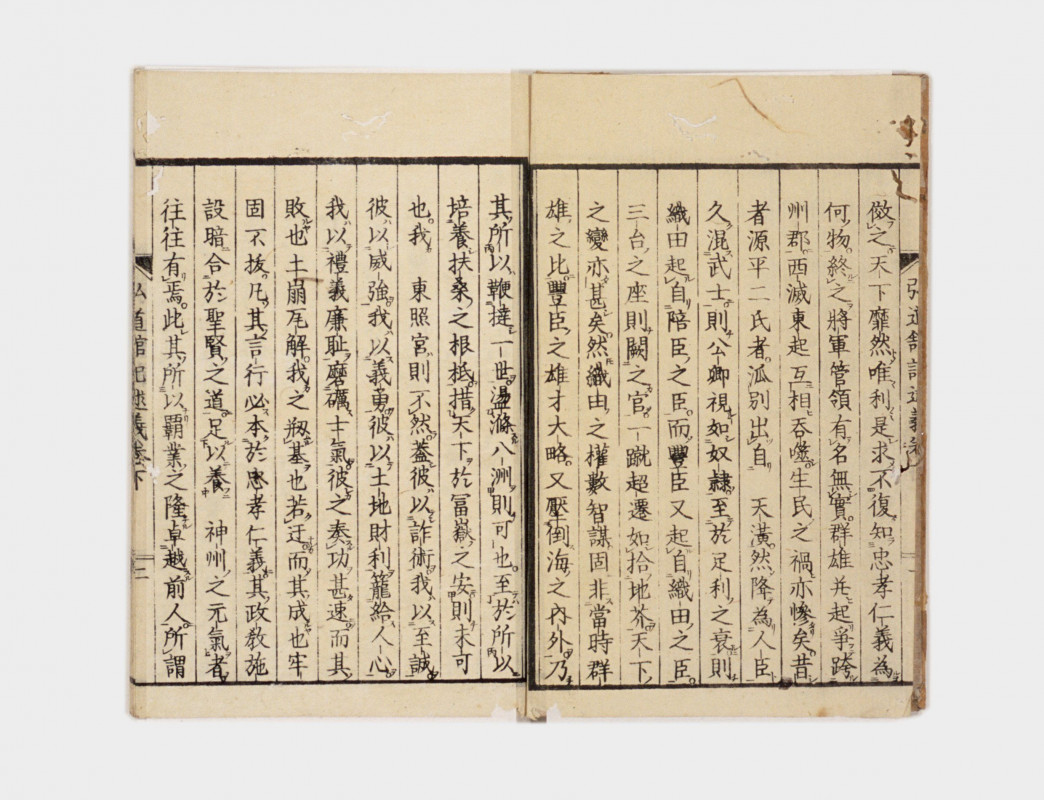 倣之天下靡然唯利是求不復知忠孝仁義為
何物終之將軍管領有名無實群雄並起爭跨
州郡西滅東起互相吞噬生民之禍亦慘矣昔
者源平二氏者派別出自　天潢然降為人臣
久混武士則公卿視如奴隷至於足利之衰則
織田起自陪臣之臣而豐臣又起自織田之臣
三台之座則闕之官一蹴超遷如拾地芥天下
之變亦甚矣然織田之權數智謀固非當時群
雄之比豐臣之雄才大略又壓倒海之內外乃
其所以鞭撻一世盪滌八洲則可也至於所以
培養扶桑之根柢措天下於冨嶽之安則未可
也我　東照宮則不然蓋彼以詐術我以至誠
彼以威強我以義勇彼以土地財利籠絡人心
我以禮義廉耻磨礪士氣彼之奏功甚速而其
敗也土崩瓦解我之剏基也若迂而其成也牢
固不拔凡其言行必本於忠孝仁義其政教施
設暗合於聖賢之道足以養　神州之元氣者
往往有焉此其所以霸業之隆卓越前人所謂
弘道館記述義卷下
二